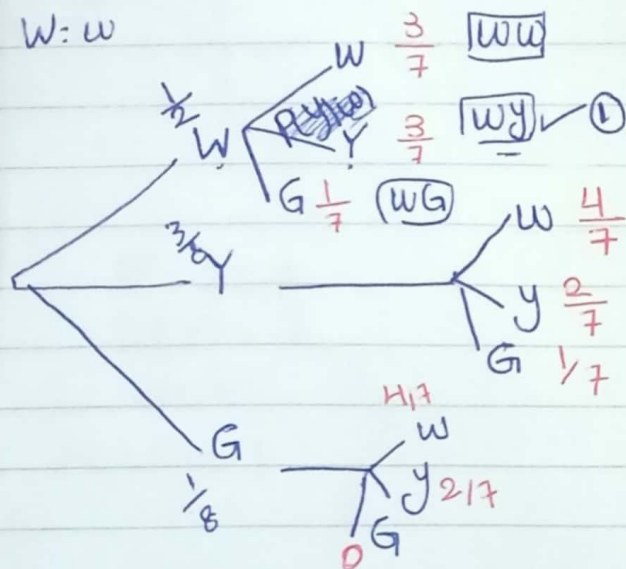 W: w
W 3/7 WW
1/2 W
Y 3/7 WY ✓ ①
G 1/7 WG
3/8 Y
W 4/7
y 2/7
G 1/7
G 1/8
4/7 W
y 2/7
G 0